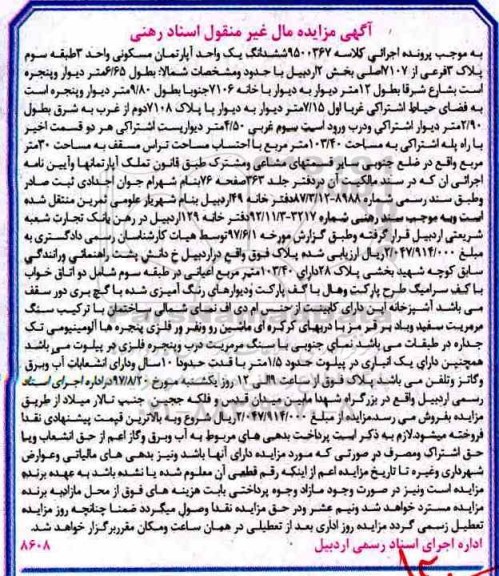 آگهی مزایده مال غیر منقول اسناد رهنی
به موجب پرونده اجرائی کلاسه ۹۵۰۰۳۶۷ ششدانگ یک واحد آپارتمان مسکونی واحد ۳ طبقه سوم
پلاک ۳ فرعی از ۷۱۰۷ اصلی بخش ۲ اردبیل با حدود ومشخصات شمالا: بطول ۶/۶۵ متر دیوار وپنجره
است بشارع شرقا بطول ۱۲ متر دیوار به دیوار با خانه ۷۱۰۶ جنوبا بطول ۹/۸۰ متر دیوار وپنجره است
به فضای حیاط اشتراکی غربا اول ۷/۱۵ متر دیوار به دیوار با پلاک ۷۱۰۸ دوم از غرب به شرق بطول
۲/۹۰ متر دیوار اشتراکی ودرب ورود است سوم غربی ۴/۵۰ متر دیواریست اشتراکی هر دو قسمت اخیر
با راه پله اشتراکی به مساحت ۱۰۳/۴۰ متر مربع با احتساب مساحت تراس مسقف به مساحت ۳۰ متر
مربع واقع در ضلع جنوبی وسایر قسمتهای مشاعی ومشترک طبق قانون تملک آپارتمانها وآیین نامه
اجرائی ان که در سند مالکیت آن دردفتر جلد ۲۶۳ صفحه ۷۶ بنام شهرام جوان اجدادی ثبت صادر
وطبق سند رسمی شماره ۸۹۸۸-۸۷/۳/۱۲ دفتر خانه ۴۹ اردبیل بنام شهریار علومی ثمرین منتقل شده
است وبه موجب سند رهنی شماره ۳۲۱۷-۹۲/۱۱/۳ دفتر خانه ۱۲۹ اردبیل در رهن بانک تجارت شعبه
شریعتی اردبیل قرار گرفته وطبق گزارش مورخه ۹۷/۶/۱ توسط هیات کارشناسان رسمی دادگستری به
مبلغ ۲/۰۴۷/۹۱۴/۰۰۰ ریال ارزیابی شده پلاک فوق واقع در اردبیل خ دانش پشت راهنمائی ورانندگی
سابق کوچه شهید بخشی پلاک ۲۸ دارای ۱۰۳/۴۰ متر مربع اعیانی در طبقه سوم شامل دو اتاق خواب
با کف سرامیک طرح پارکت وهال با کف پارکت ودیوارهای رنگ آمیزی شده با گچ بری دور سقف
می باشد آشپزخانه اپن دارای کابینت از جنس ام دی اف نمای شمالی ساختمان با ترکیب سنگ
مرمریت سفید وباد بر قرمز با دربهای کرکره ای ماشین رو ونفر رو فلزی پنجره ها آلومینیومی تک
جداره در طبقات می باشد نمای جنوبی با سنگ مرمریت درب وپنجره فلزی در پیلوت می باشد
همچنین دارای یک انباری در پیلوت حدود ۱/۵ متر با قدمت حدودا ۱۰ سال ودارای انشعابات آب وبرق
وگاز وتلفن می باشد پلاک فوق از ساعت ۹ الی ۱۲ روز یکشنبه مورخ ۹۷/۸/۲۰ دراداره اجرای اسناد
رسمی اردبیل واقع در بزرگراه شهدا مابین میدان قدس و فلکه ججین جنب تالار میلاد از طریق
مزایده بفروش می رسد مزایده از مبلغ ۲/۰۴۷/۹۱۴/۰۰۰ ریال شروع وبه بالاترین قیمت پیشنهادی نقدا
فروخته میشود.لازم به ذکر است پرداخت بدهی های مربوط به آب وبرق وگاز اعم از حق انشعاب ویا
حق اشتراک ومصرف در صورتی که مورد مزایده دارای آنها باشد ونیز بدهی های مالیاتی وعوارض
شهرداری وغیره تا تاریخ مزایده اعم از اینکه رقم قطعی آن معلوم شده یا نشده باشد به عهده برنده
مزایده است ونیز در صورت وجود مازاد وجوه پرداختی بابت هزینه های فوق از محل مازادبه برنده
مزایده مسترد خواهد شد ونیم عشر ودر حق مزایده نقدا وصول میگردد ضمنا چنانچه روز مزایده
تعطیل رسمی گردد مزایده روز اداری بعد از تعطیلی در همان ساعت ومکان مقرربرگزار خواهد شد.
اداره اجرای اسناد رسمی اردبیل
۸۶۰۸